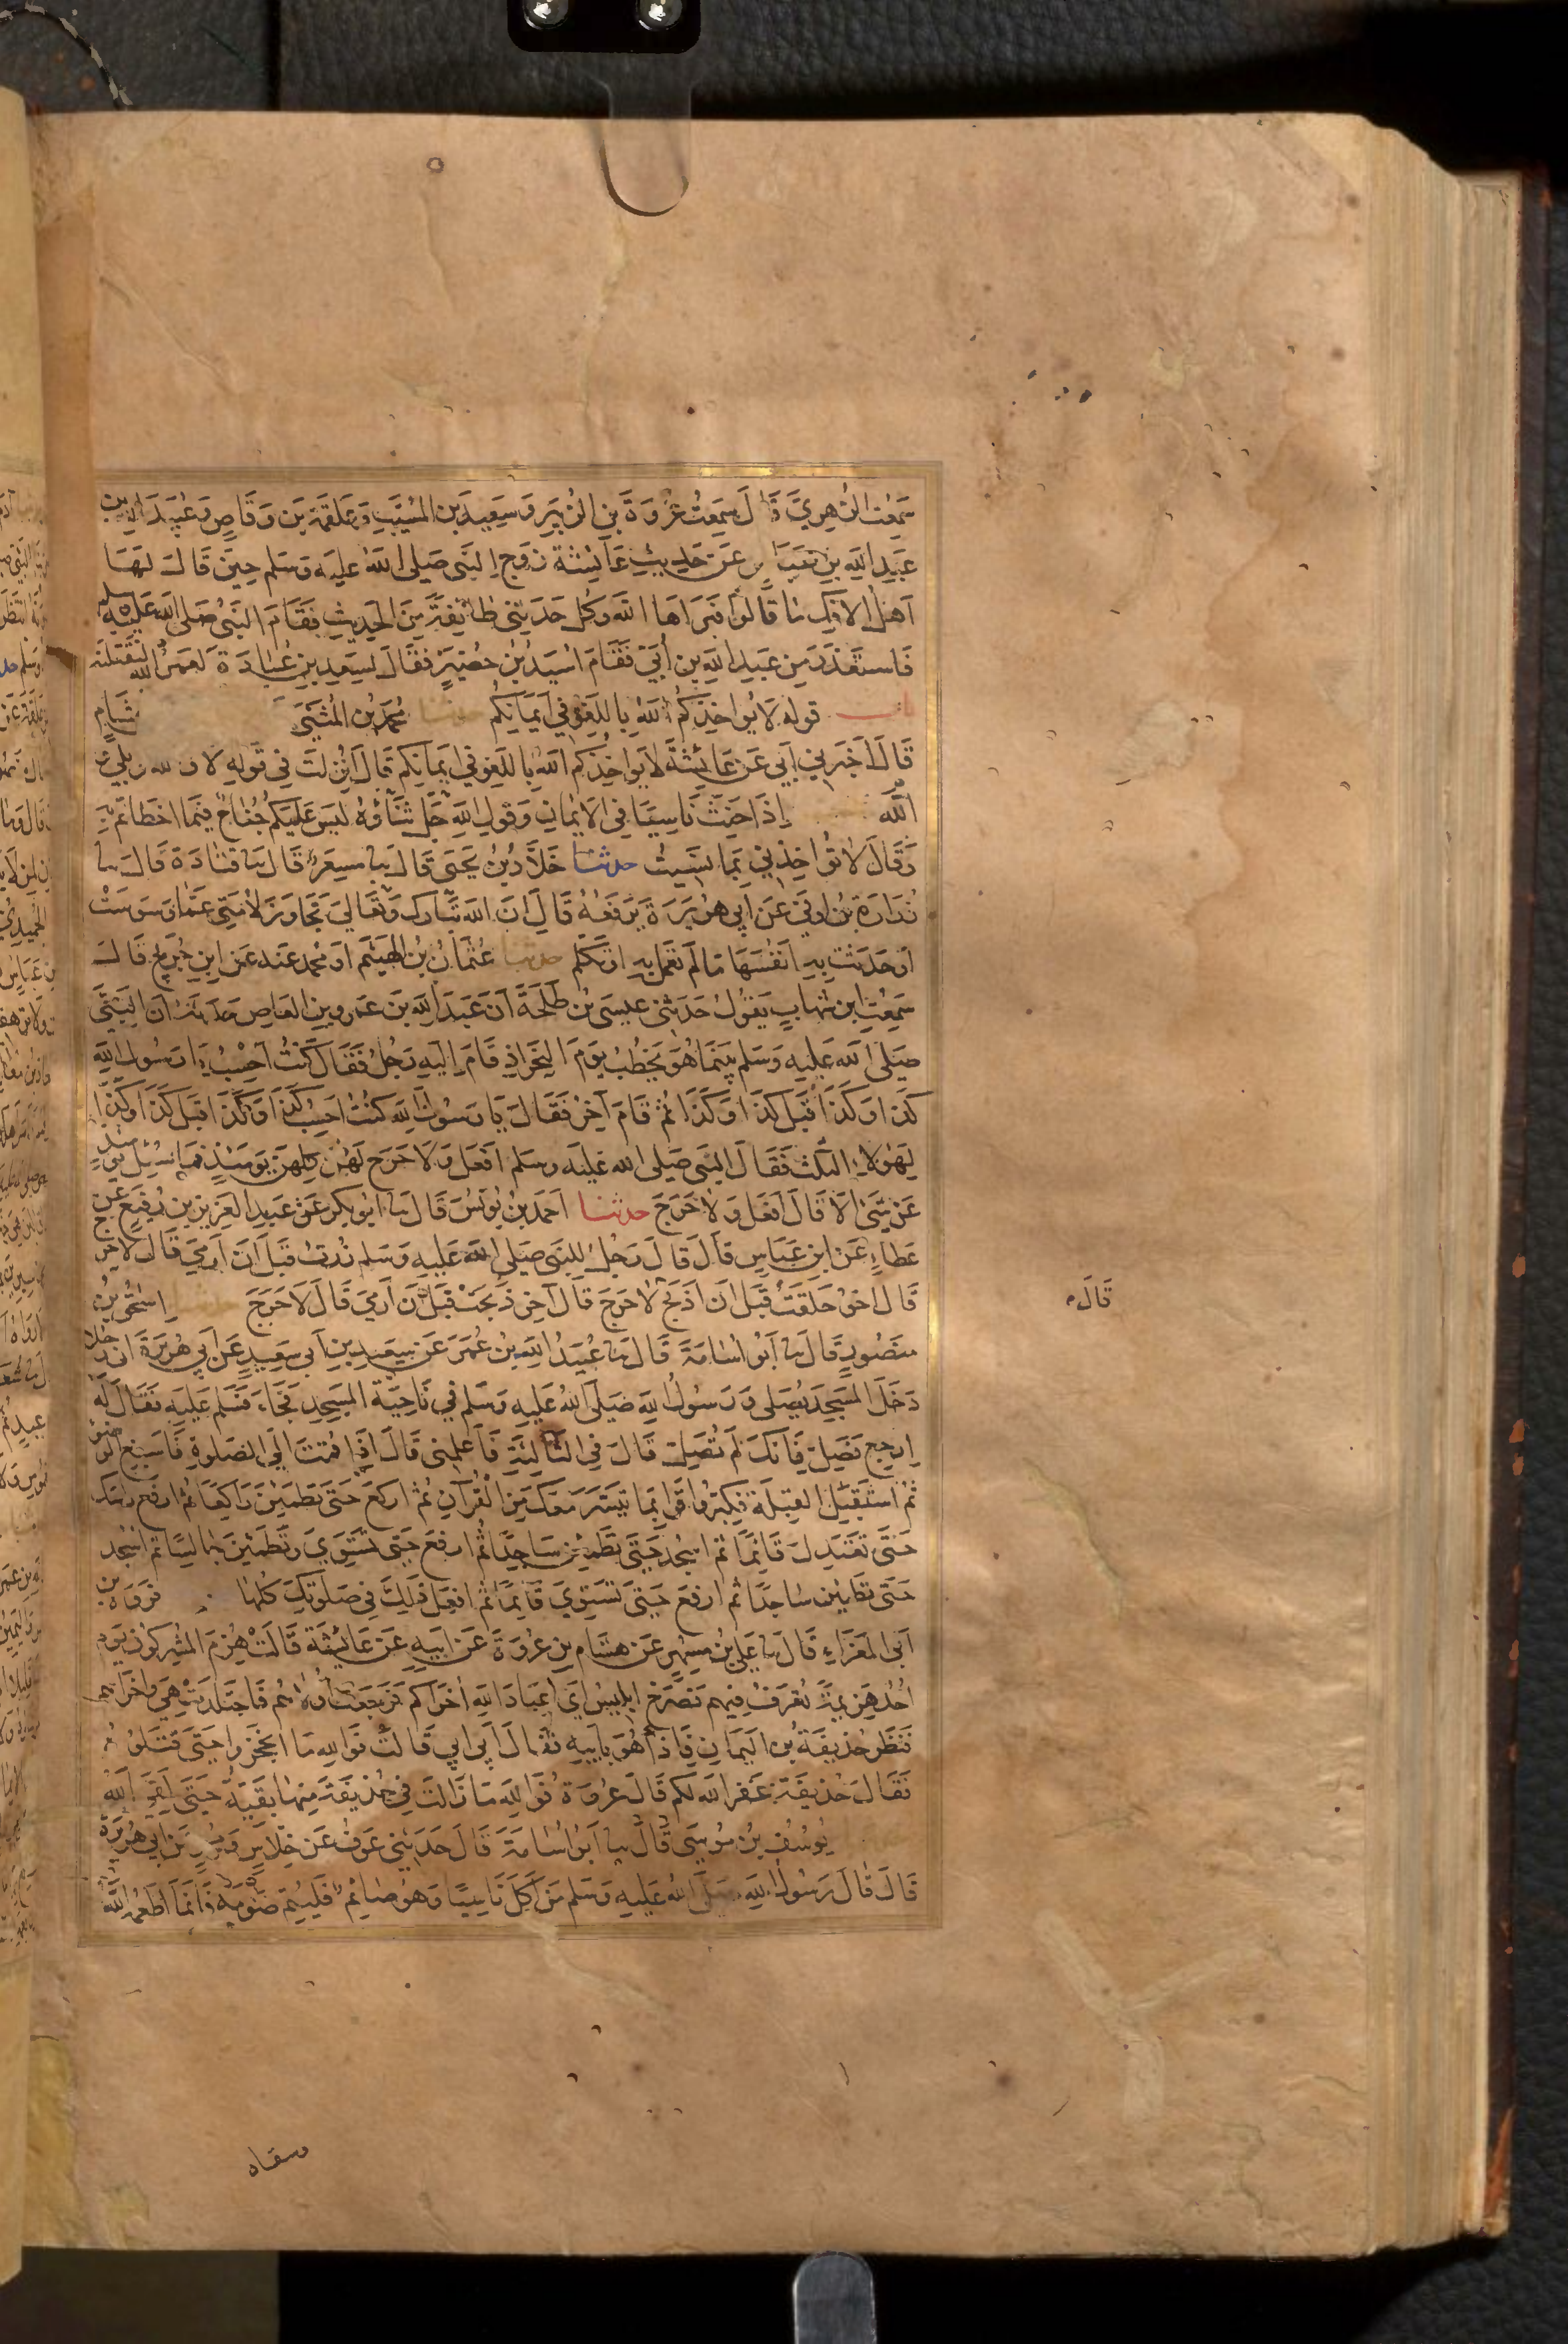 سَمِعْتُ الزُّهرِيَّ قَالَ سَمِعْتُ عُرْوَةَ بن الزُّبَيرِ وَ سَعِيدَ بن المُسَيَّبِ وَعَلقَمَةَ بنَ وَقَّاصٍ وَعُبَيدَ الله بن
عَبدِ اللهِ بنِ عن حَدِيثِ عَائِشَةَ زَوجِ النَّبي صَلى الله عليه وَسَلم حِينَ قَالَ لَهَا
أَهلُ الافكِ مَا قَالُوا فَبَرَّاهَا الله وَكُل حَدثَني طائفةٌ مِنَ الحَديثِ فقَامَ النَّبيُّ صَلى الله عَلَيهِ وسلم
فَاستعْذَرَ مِن عَبدِ اللهِ بن أُبَيّ فَقَامَ اُسَيدُ بنُ حُضَيرٍ فَقَالَ لِسَعدِ بنِ عُبادَةَ لَعَمرُ الله لنَقتُلنه
باب قوله لَا يُوَاخِذُكُمُ اللهُ بِاللَّغوِ في اَيمَانِكُم حدثنا مُحمدُ بن المُثنَّى
قَالَ اَخبَرَني اَبي عَن عَائِشَةَ لَا يُوَاخِذُكم اللهُ بِاللَّغوِ في اَيمَانِكم قَالَ اُنزِلَت في قَولِهِ لا و الله و بَلى و
الله إِذَا حَنِثَ نَاسِيًا في الاَيمانِ وَقَولِ اللهِ جَلَّ ثَنَاؤُهُ لَيسَ عَلَيكُم جُنَاحٌ فِيمَا اخطاتم به
وَقَالَ لَا تُوَاخِذني بِمَا نَسِيتُ حدثنا خَلَّادُ بنُ يَحيَى قَالَ نا مِسعَرٌ قَالَ نا قتادَةُ قَالَ نا
زُرَارَةُ بنُ اَوفَى عَن اَبي هُرَيرَةَ يَرفَعُهُ قَالَ اِنَّ اللهَ تَبَارَكَ وَتَعَالى تَجَاوَزَ لِاُمَّتي عَمَّا وَسوَسَت
اَو حَدَّثَت بِهِ اَنفُسَهَا مَا لَم تَعمَل بِهِ اَو تَكَلَّم حدثنا عُثمَانُ بنُ الهَيثَمِ اَو مُحمد عَنهُ عَنِ ابنِ جُرَيجٍ قَالَ
سَمِعتُ ابنَ شِهابٍ يَقُولُ حَدَّثني عِيسَى بنُ طَلحَةَ اَنَّ عَبدَ اللهِ بنَ عَمرِو بنِ العَاصِ حَدثهُ اَنَّ النَّبيَّ
صَلى الله عَلَيهِ وَسَلم بَينَمَا هُوَ يَخطُبُ يَومَ النَّحرِ اِذ قَامَ اِلَيهِ رَجُلٌ فَقَالَ كُنتُ اَحسِبُ يَا رَسُولَ اللهِ
كذا وَكَذَا قَبلَ كذا وَكَذَا ثم قَامَ آخَرُ فَقَالَ يَا رَسُولَ اللهِ كُنتُ اَحسِبُ كَذَا وَكَذَا قَبلَ كَذَا وَكَذَا
لِهؤلاءِ الثلث فَقَالَ النَّبي صَلى الله عَليه وسلم افعَل وَلَا حَرَجَ لَهُن كُلِّهِنَّ يَومَئِذٍ فمَا سُئِلَ يومئذٍ
عَن شَيءٍ اِلَّا قَالَ افعَل وَلَا حَرَجَ حدثنا اَحمَدُ بنُ يُونُسَ قَالَ نا اَبُو بكرٍ عَن عَبدِ العَزِيزِ بنِ رُفَيعٍ عَن
عَطَاءٍ عَنِ ابنِ عَبَّاسٍ قَالَ قَالَ رَجُلٌ لِلنَّبي صَلى الله عَلَيهِ وَسَلم زُرتُ قَبلَ اَن اَرمِيَ قَالَ لَا حرج
قَالَ آخرُ حَلَقتُ قَبلَ اَن اَذبَحَ لَا حَرَجَ قَالَ آخر ذَبَحتُ قَبلَ اَن اَرمِيَ قَالَ لَا حَرَجَ اِسحٰقُ بنُ
قَالَ
مَنصُورٍ قَالَ نا اَبُو اُسَامَةَ قَالَ نا عُبَيدُ اللهِ بنُ عُمَرَ عَن سَعِيدِ بنِ اَبي سَعِيدٍ عَن اَبي هُرَيرَةَ اَنَّ رَجُلا
دَخَلَ المَسجِدَ يُصَلي وَرَسُولُ اللهِ صَلَّى اللهُ عَلَيهِ وَسَلم في نَاحِيَةِ المَسجِدِ فَجَاءَ فَسَلَّم عَلَيهِ فَقَالَ لَه
اِرجِع فَصَلِّ فَاِنَّكَ لَم تُصَلِّ قَالَ في الثالثَةِ فَاَعلِمني قَالَ اِذَا قُمتَ اِلى الصَّلوةِ فَاَسبِغِ الوضوء
ثُم استَقبِلِ القِبلَةَ فَكَبِّر وَاقرَا بِمَا تَيَسَّرَ مَعَكَ مِنَ القُرآنِ ثُم اركَع حَتى تَطمَئِنَّ رَاكِعًا ثُم ارفَع راسك
حَتَّى تَعتَدِلَ قَائِمًا ثم اسجُد حَتَّى تَطمَئِنَّ سَاجِدًا ثُم ارفَع حَتى تَستَوِيَ وَتَطمَئِنَّ جالسًا ثم اسجُد
حَتى تطمَئِن ساجدًا ثم ارفَع حَتَّى تَستَوِيَ قَائِمًا ثم افعَل ذٰلِكَ في صَلوتِكَ كُلِّهَا فروةُ بن
اَبي المَغرَاءِ قَالَ نا عَلي بنُ مُسهِرٍ عَن هشَامِ بنِ عُروَةَ عَن اَبيهِ عَن عَائِشَةَ قَالَت هُزِمَ المُشرِكُونَ يَومَ
اُحُدٍ هَزِيمَةً تُعرَفُ فِيهِم فصَرَخَ اِبلِيسُ اَي عِبَادَ اللهِ اُخرَاكم فَرَجَعَت اُولَاهُم فَاجتَلَدَت هِيَ واُخرَاهم
فَنَظَرَ حُذَيفَةُ بنُ اليَمَانِ فَاِذَا هُوَ بِاَبيهِ فَقَالَ اَبي اَبي قَالَت فَوَاللهِ مَا انحَجَزُوا حَتى قَتَلُوهُ
فَقَالَ حُذَيفَةُ غَفَرَ اللهُ لَكم قَالَ عُروَةُ فَوَاللهِ مَا زَالَت في حُذَيفَةَ مِنهَا بَقِيَّةٌ حَتى لَقِيَ اللهَ
يُوسُفُ بنُ مُوسَى قَالَ نا اَبُو اُسَامَةَ قَالَ حَدَثَني عَوفٌ عَن خِلَاسٍ وَمُحَمَّدٍ عَن اَبي هُرَيرَة
قَالَ قَالَ رَسُولُ اللهِ صَلَّى اللهُ عَلَيهِ وَسَلم مَن اَكَلَ نَاسِيًا وَهُوَ صَائِم فَليُتِمَّ صَومَهُ فَاِنَّمَا اَطعَمَهُ اللهُ
وسقاه